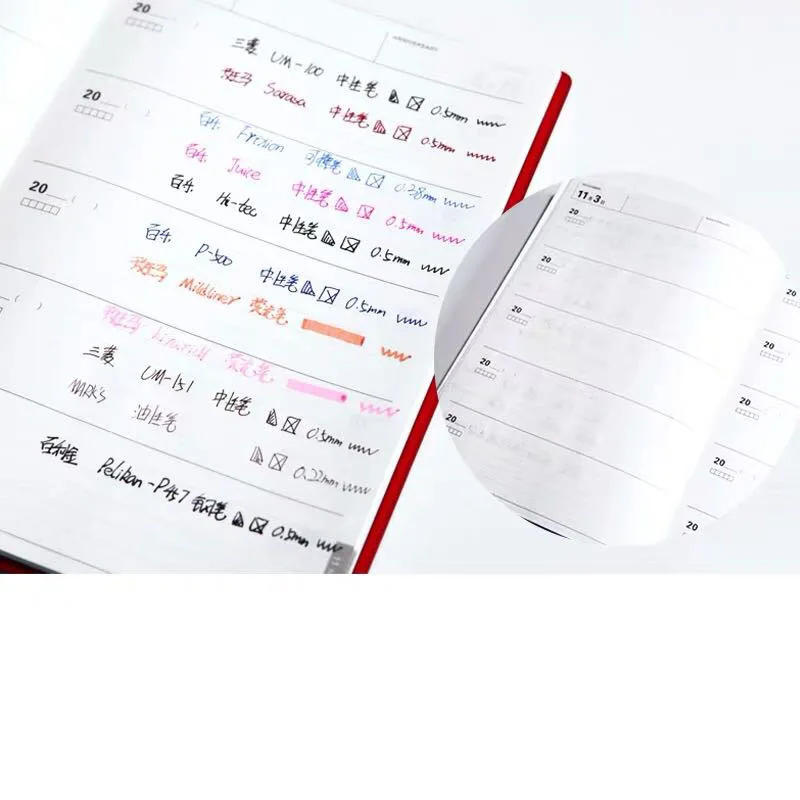 20
ANNIVERSARY
三菱 UM-100 中性笔 0.5mm
斑马 Sarasa 中性笔 0.5mm
20
百乐 Frixion 可擦笔 0.38mm
百乐 Juice 中性笔 0.5mm
百乐 Hi-tec 中性笔 0.5mm
20
百乐 P-500 中性笔 0.5mm
斑马 Mildliner 荧光笔
荧光笔
三菱 UM-151 中性笔 0.5mm
MARK'S 油性笔 0.22mm
百利金 Pelikan-P457 钢笔 0.5mm
11
11月3日
20
20
20
20
20
20
20
20
20
20